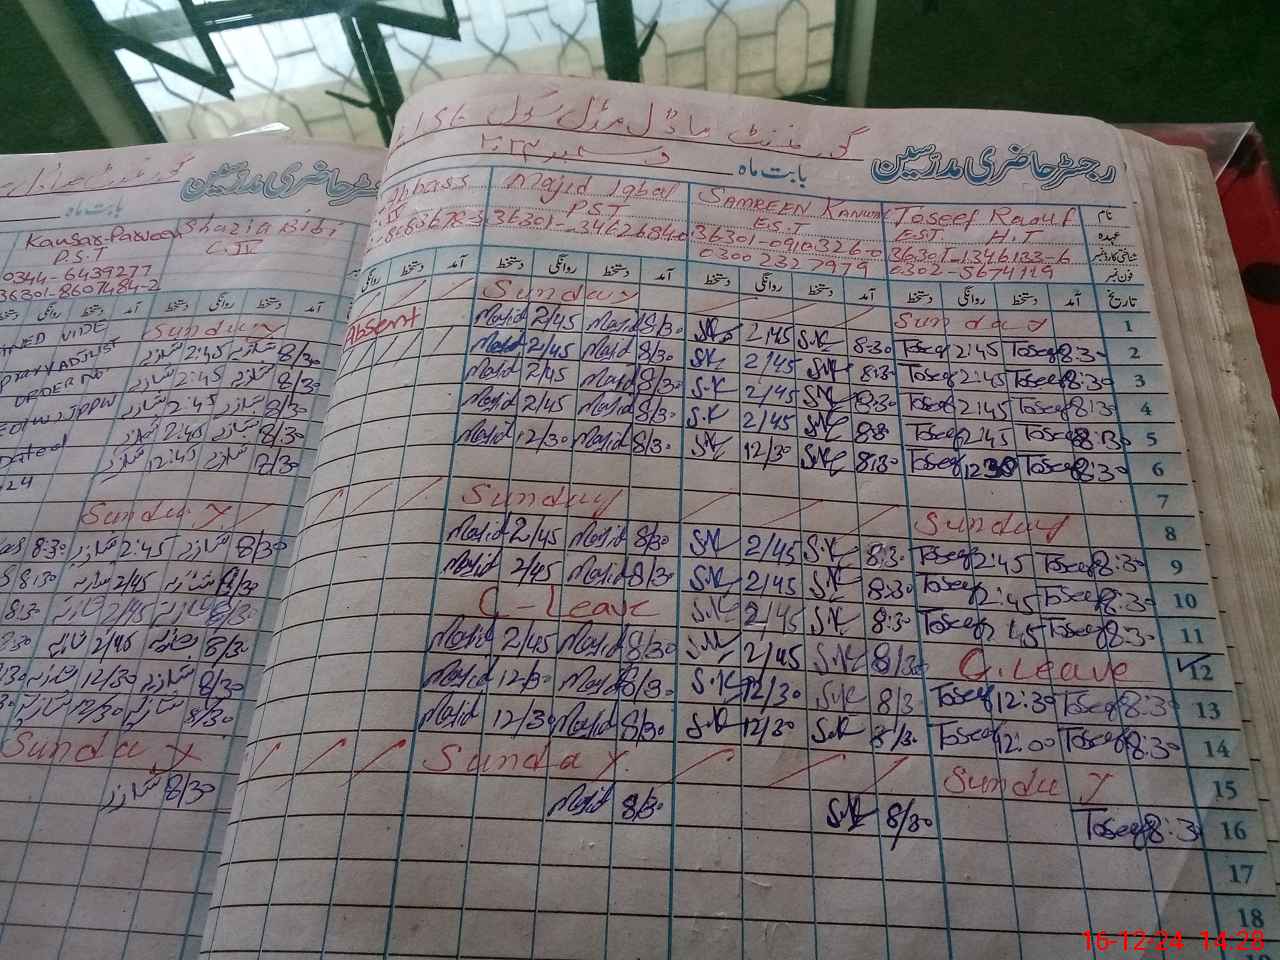 گورنمنٹ ماڈل مڈل سکول 156
رجسٹر حاضری مدرسین
بابت ماہ دسمبر ۲۰۲۴
نام
عہدہ
شناختی کارڈ نمبر
فون نمبر
Toseef Raouf
EST H.T
36301-1346133-6
0302-5674119
SAMREEN KANWAL
E.S.T
36301-0910326-0
0300 2327979
Majid Iqbal
P.S.T
36301-3462684-
Abbass
تاریخ آمد دستخط روانگی دستخط آمد دستخط روانگی دستخط آمد دستخط روانگی دستخط آمد دستخط روانگی
1 Sunday Sunday
2 8:30 Toseef 2:45 Toseef 8:30 S.K 2/45 S.K 8/30 Majid 2/45 Majid Absent
3 8:30 Toseef 2:45 Toseef 8:30 S.K 2/45 S.K 8/30 Majid 2/45 Majid
4 8:30 Toseef 2:45 Toseef 8:30 S.K 2/45 S.K 8/30 Majid 2/45 Majid
5 8:30 Toseef 2:45 Toseef 8:30 S.K 2/45 S.K 8/30 Majid 2/45 Majid
6 8:30 Toseef 12:30 Toseef 8:30 S.K 12/30 S.K 8/30 Majid 12/30 Majid
7
8 Sunday Sunday
9 8:30 Toseef 2:45 Toseef 8:30 S.K 2/45 S.K 8/30 Majid 2/45 Majid
10 8:30 Toseef 2:45 Toseef 8:30 S.K 2/45 S.K 8/30 Majid 2/45 Majid
11 8:30 Toseef 2:45 Toseef 8:30 S.K 2/45 S.K C-Leave
12 C.Leave 8/30 S.K 2/45 S.K 8/30 Majid 2/45 Majid
13 8:30 Toseef 12:30 Toseef 8/3 S.K 12/30 S.K 8/30 Majid 12/30 Majid
14 8:30 Toseef 12:00 Toseef 8/30 S.K 12/30 S.K 8/30 Majid 12/30 Majid
15 Sunday Sunday
16 8:30 Toseef 8/30 S.K 8/30 Majid
17
18
رجسٹر حاضری مدرسین
بابت ماہ
Shazia Bibi
Kausar Parveen
P.S.T
0344-6439277
36301-8607484-2
آمد دستخط روانگی دستخط
Sunday
8/30 شازیہ 2:45 شازیہ
8/30 شازیہ 2:45 شازیہ
8/30 شازیہ 2:45 شازیہ
8/30 شازیہ 2:45 شازیہ
8/30 شازیہ 12:45 شازیہ
PROXY ADJUST
ORDER NO
Dated
Sunday
8/30 شازیہ 2:45 شازیہ 8:30
8/30 شازیہ 2/45 شازیہ 8:30
8/30 شازیہ 2/45 شازیہ 8:30
8/30 شازیہ 2/45 شازیہ
8/30 شازیہ 12/30 شازیہ
8/30 شازیہ 12/30 شازیہ
Sunday
8/30 شازیہ
16-12-24 14:28